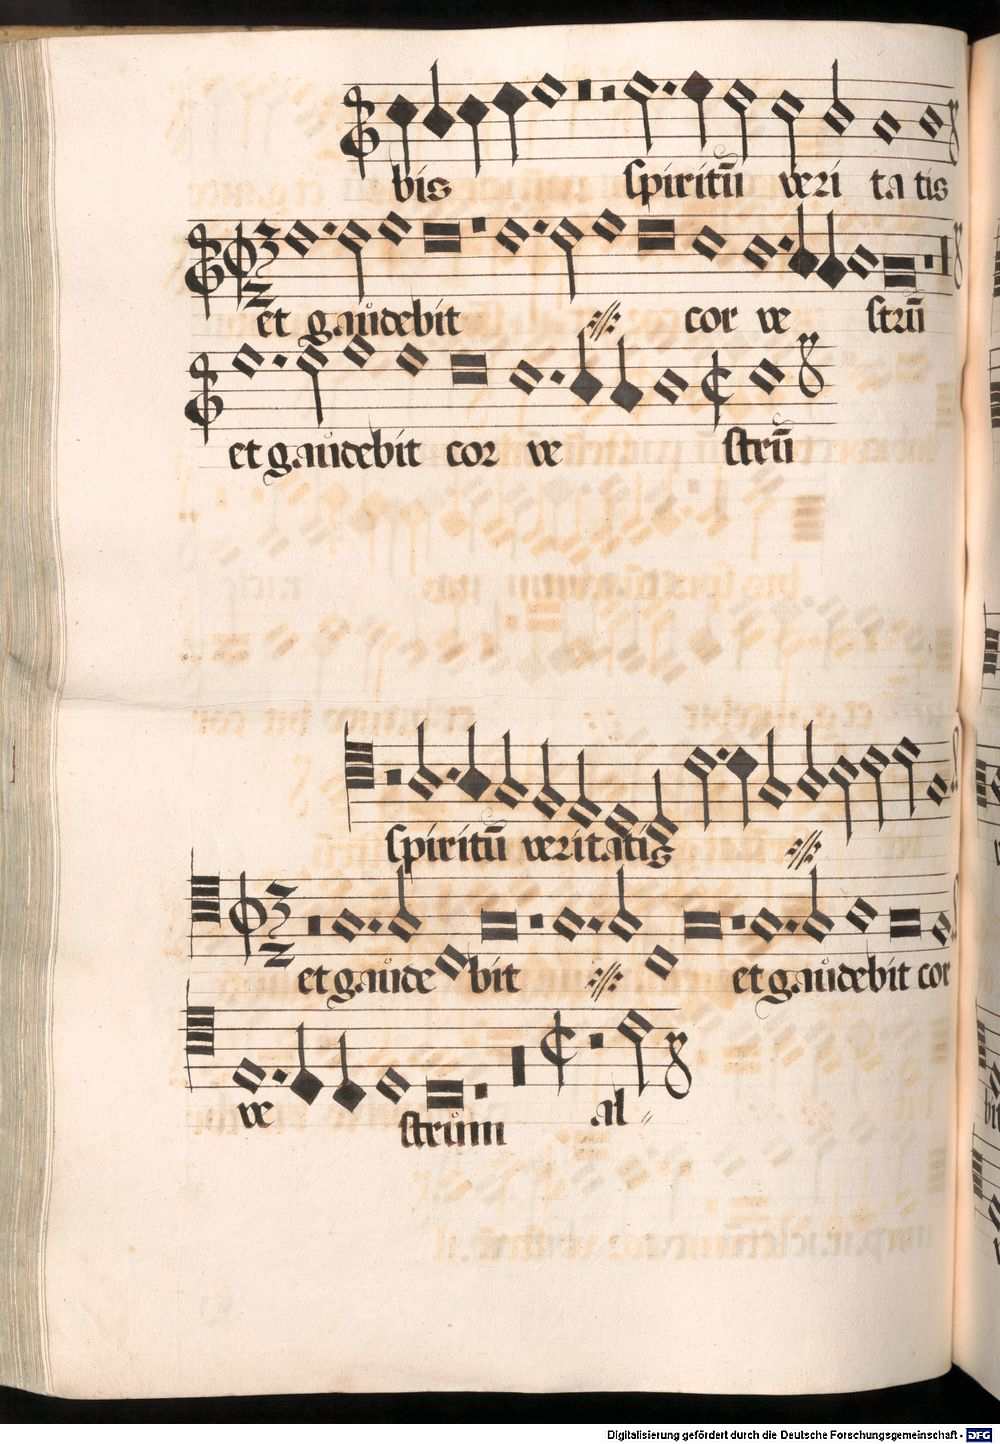 bis spiritū veri ta tis
et gaůdebit cor ve strū
et gaůdebit cor ve strū
spiritū veritatis
et gaůde bit et gaůdebit cor
ve strům al
Digitalisierung gefördert durch die Deutsche Forschungsgemeinschaft - DFG